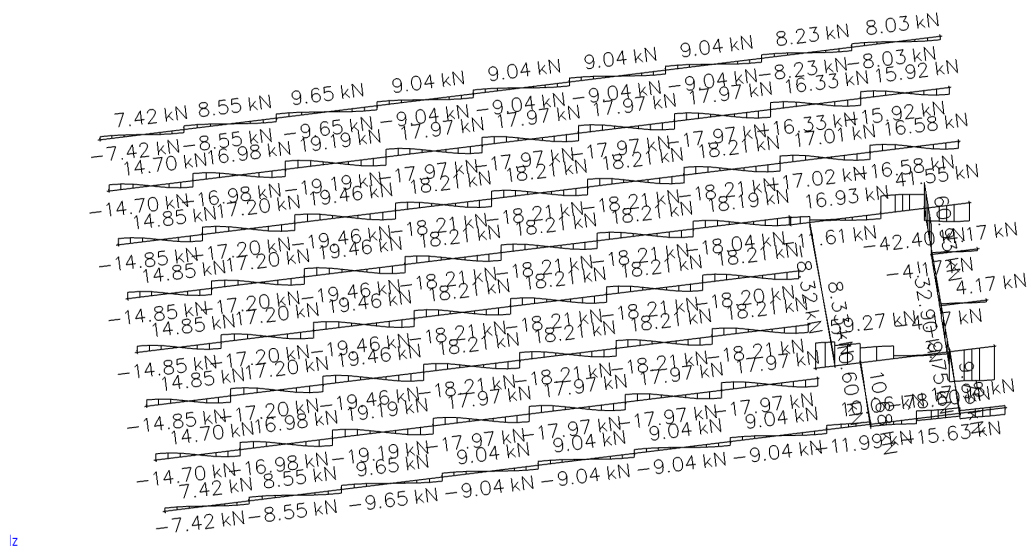 7.42 kN 8.55 kN 9.65 kN 9.04 kN 9.04 kN 9.04 kN 9.04 kN 8.23 kN 8.03 kN
-7.42 kN -8.55 kN -9.65 kN -9.04 kN -9.04 kN -9.04 kN -9.04 kN -8.23 kN -8.03 kN
14.70 kN 16.98 kN 19.19 kN 17.97 kN 17.97 kN 17.97 kN 17.97 kN 16.33 kN 15.92 kN
-14.70 kN -16.98 kN -19.19 kN -17.97 kN -17.97 kN -17.97 kN -17.97 kN -16.33 kN -15.92 kN
14.85 kN 17.20 kN 19.46 kN 18.21 kN 18.21 kN 18.21 kN 18.21 kN 17.01 kN 16.58 kN
-14.85 kN -17.20 kN -19.46 kN -18.21 kN -18.21 kN -18.21 kN -18.21 kN -17.02 kN -16.58 kN
14.85 kN 17.20 kN 19.46 kN 18.21 kN 18.21 kN 18.21 kN 18.19 kN 16.93 kN 41.55 kN
-14.85 kN -17.20 kN -19.46 kN -18.21 kN -18.21 kN -18.21 kN -18.04 kN
14.85 kN 17.20 kN 19.46 kN 18.21 kN 18.21 kN 18.21 kN
-14.85 kN -17.20 kN -19.46 kN -18.21 kN -18.21 kN -18.21 kN -18.20 kN
4.17 kN
14.85 kN 17.20 kN 19.46 kN 18.21 kN 18.21 kN 18.21 kN 18.21 kN
-14.85 kN -17.20 kN -19.46 kN -18.21 kN -18.21 kN -18.21 kN -18.21 kN
8.32 kN
14.70 kN 16.98 kN 19.19 kN 17.97 kN 17.97 kN 17.97 kN 17.97 kN
-14.70 kN -16.98 kN -19.19 kN -17.97 kN -17.97 kN -17.97 kN -17.97 kN
7.42 kN 8.55 kN 9.65 kN 9.04 kN 9.04 kN 9.04 kN 9.04 kN
-7.42 kN -8.55 kN -9.65 kN -9.04 kN -9.04 kN -9.04 kN -9.04 kN -11.99 kN
lz